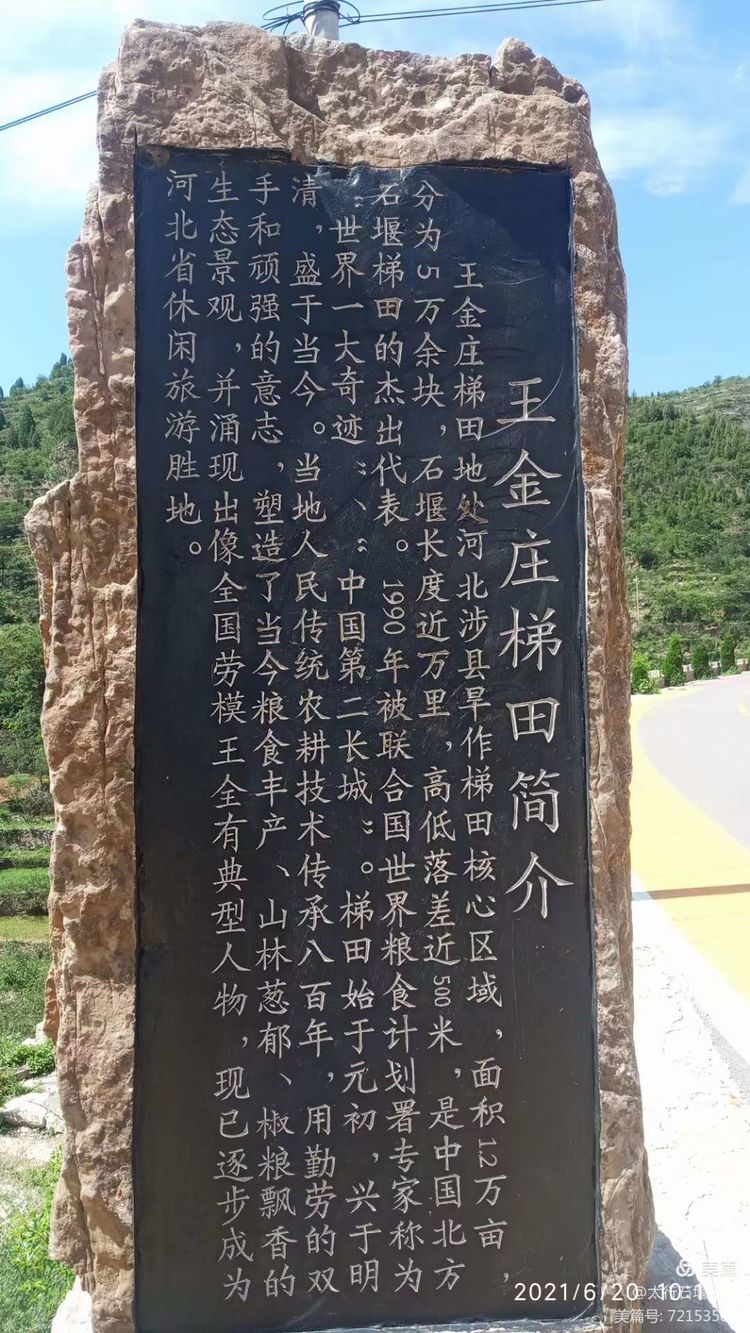 王金庄梯田简介
王金庄梯田地处河北涉县旱作梯田核心区域，面积1.2万亩，
分为5万余块，石堰长度近万里，高低落差近500米，是中国北方
石堰梯田的杰出代表。1990年被联合国世界粮食计划署专家称为
“世界一大奇迹”、“中国第二长城”。梯田始于元初，兴于明
清，盛于当今。当地人民传统农耕技术传承八百年，用勤劳的双
手和顽强的意志，塑造了当今粮食丰产、山林葱郁、椒粮飘香的
生态景观，并涌现出像全国劳模王全有典型人物，现已逐步成为
河北省休闲旅游胜地。
美篇
2021/6/20 10:1
@太行
美篇号: 721535